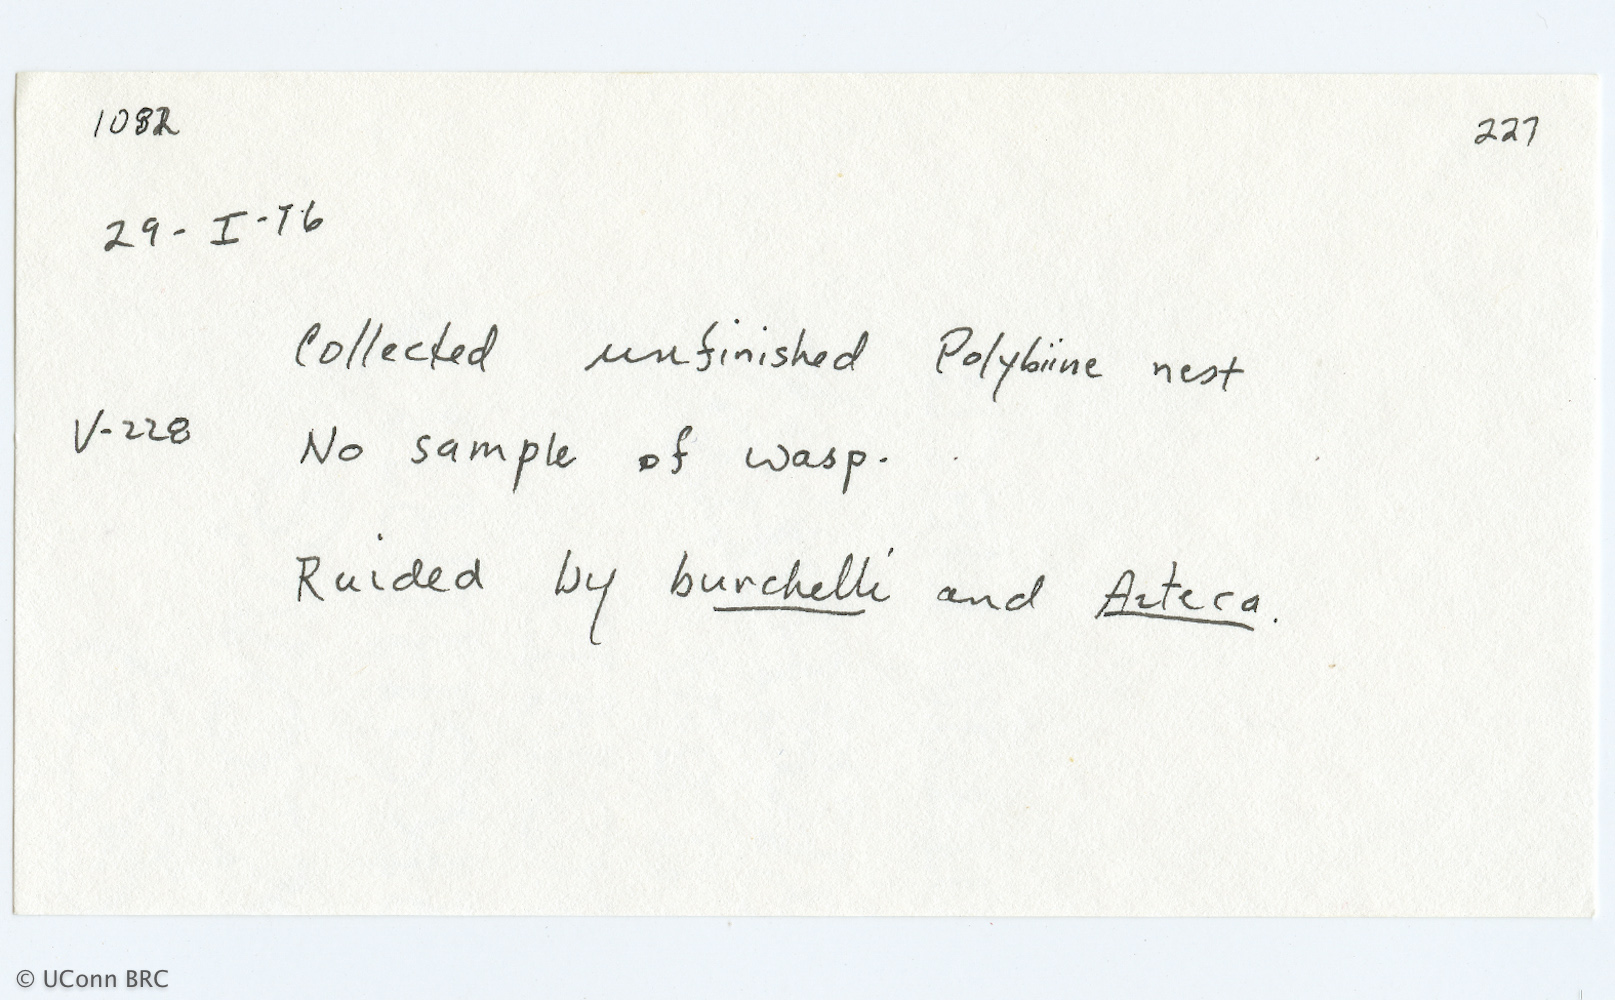 1082 227
29-I-76
Collected unfinished Polybiine nest
V-228 No sample of wasp.
Raided by burchelli and Azteca.
© UConn BRC